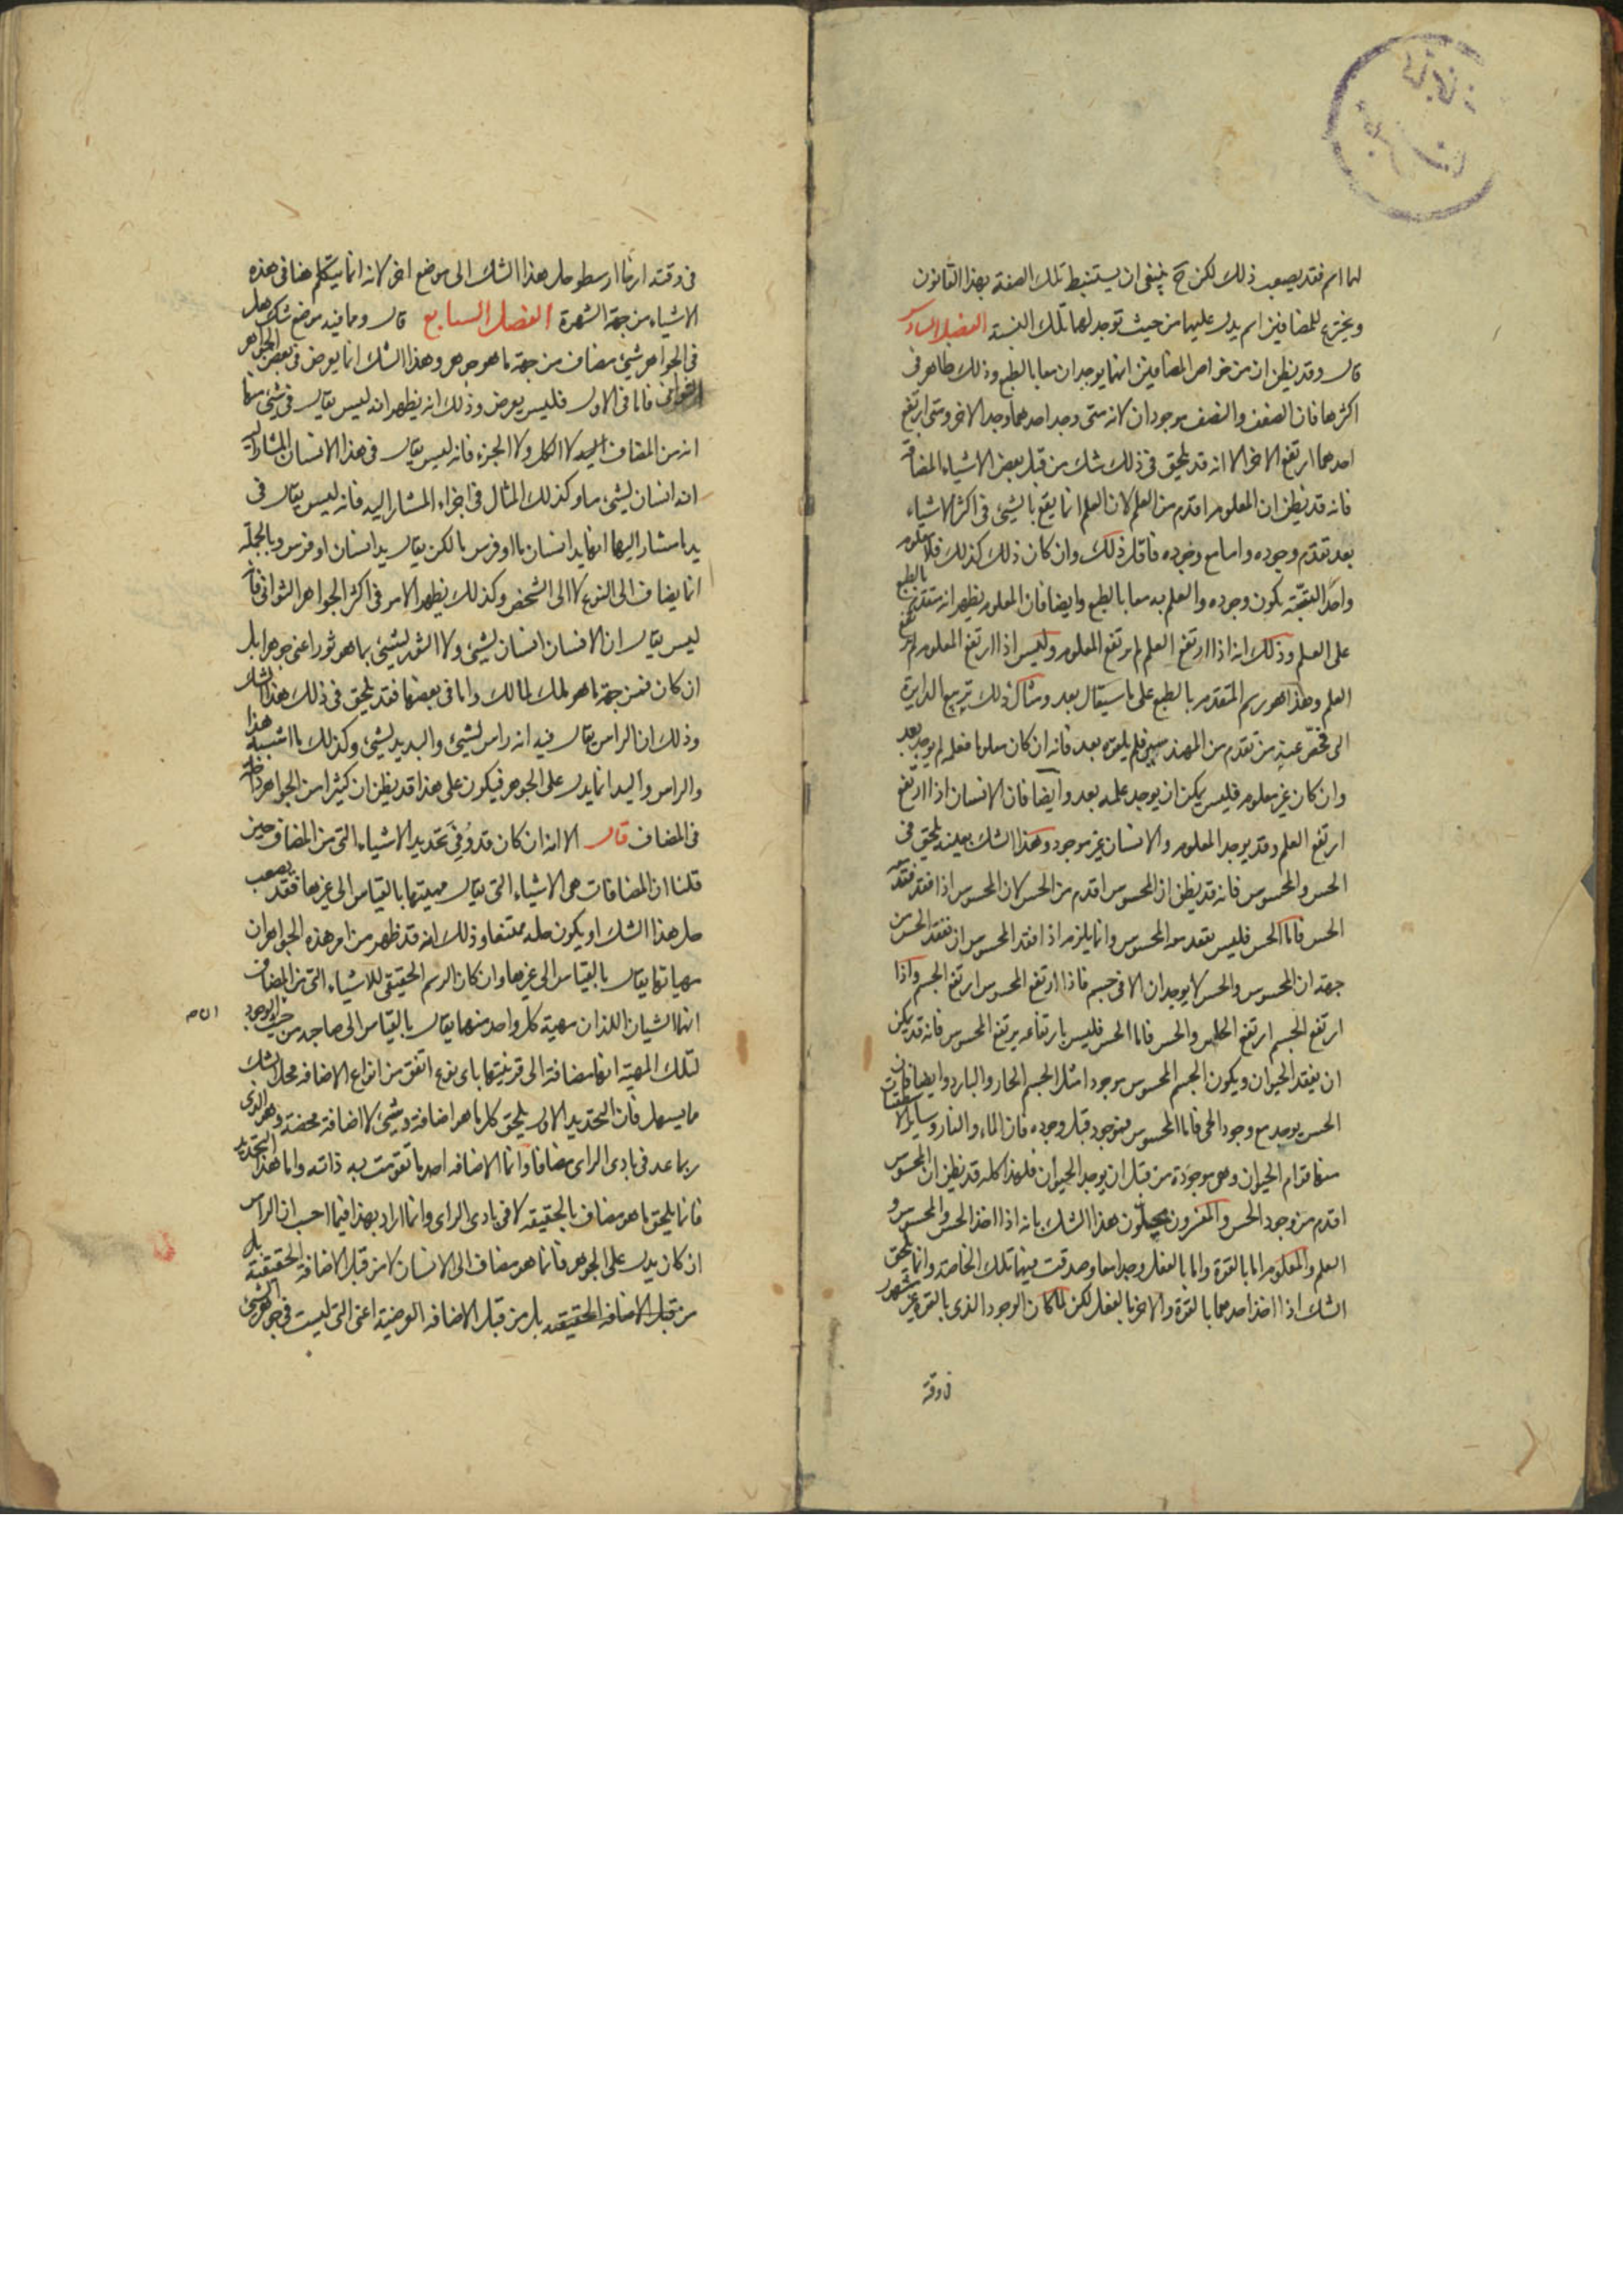 لها اسم فقد يصعب ذلك لكن ح ينبغى ان يستنبط تلك الصفة بهذا القانون
ويخترع للمضافين اسم يدل عليهما من حيث توجد لهما تلك النسبة الفصل السادس
قال وقد يظن ان من خواص المضافين انهما يوجدان معا بالطبع وذلك ظاهر فى
اكثرها فان الضعف والنصف موجودان لانه متى وجد احدهما وجد الاخر ومتى ارتفع
احدهما ارتفع الاخر الا انه قد يلحق فى ذلك شك من قبل بعض الاشياء المضافة
فانه قد يظن ان المعلوم اقدم من العلم لان العلم انما يقع بالشئ فى اكثر الاشياء
بعد تقدم وجوده واما مع وجوده فاقل ذلك وان كان ذلك كذلك فلا معلوم
واحدا البتة يكون وجوده والعلم به معا بالطبع وايضا فان المعلوم يظهر انه متقدم بالطبع
على العلم وذلك انه اذا ارتفع العلم لم يرتفع المعلوم وليس اذا ارتفع المعلوم لم يرتفع
العلم وهذا هو رسم المتقدم بالطبع على ما سيقال بعد ومثال ذلك تربيع الدايرة
الى فحص عنه من تقدم من المهندسين فلم يلفوه بعد فانه ان كان معلوما فعلم لم يوجد بعد
وان كان غير معلوم فليس يمكن ان يوجد علمه بعد وايضا فان الانسان اذا ارتفع
ارتفع العلم وقد يوجد المعلوم والانسان غير موجود وهذا الشك بعينه يلحق فى
الحس والمحسوس فانه قد يظن ان المحسوس اقدم من الحس لان المحسوس اذا فقد فقد معه
الحس فاما الحس فليس يفقد معه المحسوس وانما يلزم اذا افتقد المحسوس ان يفقد الحس من
جهة ان المحسوس والحس لا يوجدان الا فى جسم فاذا ارتفع المحسوس ارتفع الجسم واذا
ارتفع الجسم ارتفع الحاس والحس فاما الحس فليس بارتفاعه يرتفع المحسوس فانه قد يمكن
ان يفقد الحيوان ويكون الجسم المحسوس موجودا مثل الجسم الحار والبارد وايضا فان
الحس يوجد مع وجود الحى فاما المحسوس فموجود قبل وجوده فان الماء والنار وساير الاسطقسات
منها قوام الحيوان وهى موجودة من قبل ان يوجد الحيوان فلهذا كله قد يظن ان المحسوس
اقدم من وجود الحس والمفسرون يحيلون هذا الشك بانه اذا اخذ الحس والمحسوس و
العلم والمعلوم اما بالقوة واما بالفعل وجدا معا وصدقت فيهما تلك الخاصة وانما يلحق
الشك اذا اخذ احدهما بالقوة والاخر بالفعل لكن لما كان الوجود الذى بالقوة غير مشهور
فى وقته
فى وقته ارجا ارسطو حل هذا الشك الى موضع اخر لانه انما يتكلم هنا فى هذه
الاشياء من جهة الشهرة الفصل السابع قال ومما فيه موضع شك هل
فى الجواهر شئ مضاف من جهة ما هو جوهر وهذا الشك انما يعرض فى بعض الجواهر
الثوانى فاما فى الاول فليس يعرض وذلك انه يظهر انه ليس يقال فى شئ منها
انه من المضاف اليه لا الكل ولا الجزء فانه ليس يقال فى هذا الانسان المشار اليه
انه انسان لشئ ما وكذلك المثال فى اجزاء المشار اليه فانه ليس يقال فى
يد ما مشار اليها انها يد انسان ما او فرس ما لكن يقال يد انسان او فرس وبالجملة
انما يضاف الى النوع لا الى الشخص وكذلك يظهر الامر فى اكثر الجواهر الثوانى فانه
ليس يقال ان الانسان انسان لشئ ولا الثور لشئ بما هو ثور اعنى جوهرا بل
ان كان فمن جهة ما هو ملك لمالك واما فى بعضها فقد يلحق فى ذلك هذا الشك
وذلك ان الراس يقال فيه انه راس لشئ واليد يد لشئ وكذلك ما اشبه هذا
والراس واليد انما يدل على الجوهر فيكون على هذا قد يظن ان كثيرا من الجواهر داخلة
فى المضاف قال الا انه ان كان قد وفى تحديد الاشياء التى من المضاف حين
قلنا ان المضافات هى الاشياء التى يقال مهيتها بالقياس الى غيرها فقد يصعب
حل هذا الشك او يكون حله ممتنعا وذلك انه قد ظهر من امر هذه الجواهر ان
مهياتها يقال بالقياس الى غيرها وان كان الرسم الحقيقى للاشياء التى من المضاف
انهما الشيان اللذان مهية كل واحد منهما يقال بالقياس الى صاحبه من حيث الوجود
لتلك المهية انها مضافة الى قرينتها باى نوع اتفق من انواع الاضافه فحل الشك
مما يسهل فان التحديد الاول يلحق كل ما هو اضافة وشئ لا اضافة محضة وهو الذى
ربما عد فى بادى الراى مضافا وانما الاضافه احد ما تقومت به ذاته واما هذا التحديد
فانما يلحق ما هو مضاف بالحقيقة لا فى بادى الراى وانما اراد بهذا فيما احسب ان الراس
ان كان يدل على الجوهر فانما هو مضاف الى الانسان لا من قبل الاضافة الحقيقية بل
من قبل الاضافه الحقيقه بل من قبل الاضافه العرضية اعنى التى ليست فى جوهر الشئ